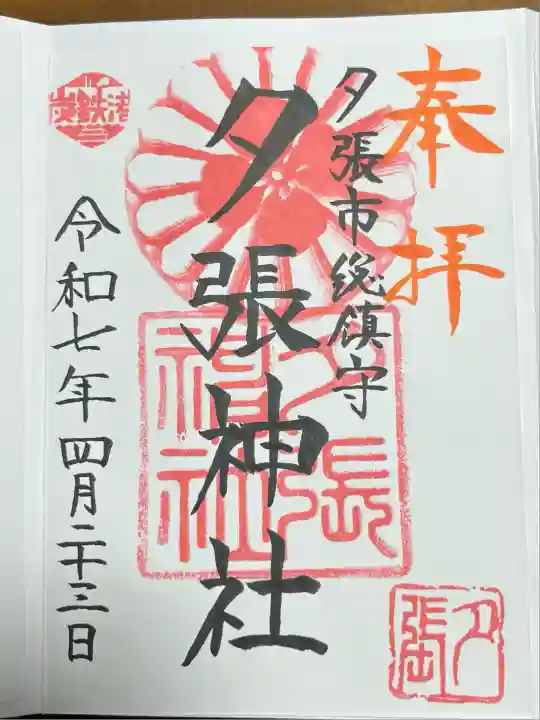 奉拝
夕張市総鎮守
夕張神社
令和七年四月二十三日
夕張神社